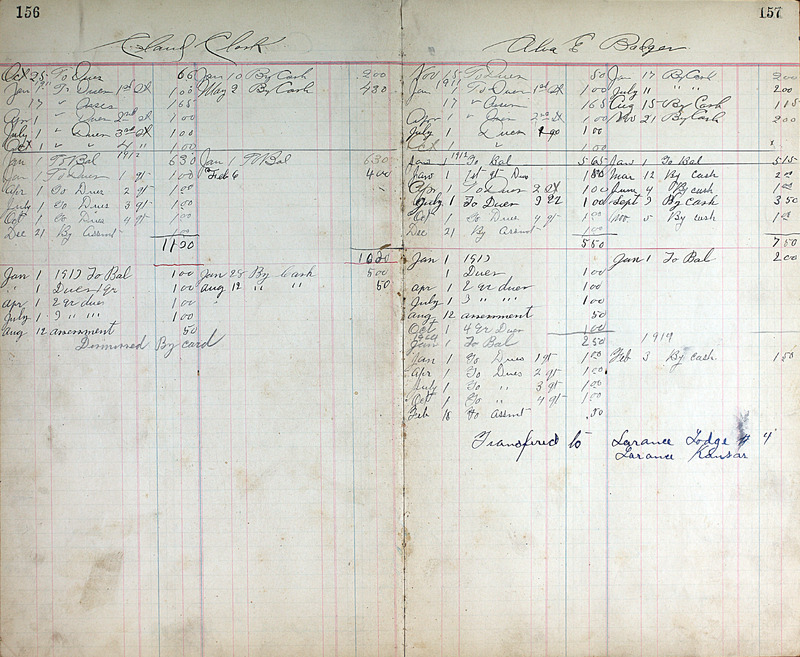 156
Claud Clark
Oct 25 To Dues 66 Jan 10 By Cash 200
Jan 1 To Dues 1st 100 May 2 By Cash 430
17 " Asses 165
Apr 1 " Dues 2nd 100
July 1 " Dues 3rd 100
Oct 1 " " 4 " 100
Jan 1 To Bal 1912 630 Jan 1 To Bal 630
Jan 1 To Dues 1 qr 100 Feb 6 400
Apr 1 To Dues 2 qr 100
July 1 To Dues 3 qr 100
Oct 1 To Dues 4 qr 100
Dec 21 By Assmt
1130
1030
Jan 1 1913 To Bal 100 Jan 28 By Cash 500
" 1 Dues 1 qr 100 Aug 12 " " 50
Apr 1 2 qr dues 100
July 1 3 " " 100
Aug 12 assessment 50
Dismissed By card
157
Alva E Badger
Nov 15 To Dues 50 Jan 17 By Cash 200
Jan 1911 To Dues 1st 100 July 11 " " 200
17 " Assm 165 Aug 15 By Cash 115
Apr 1 " Dues 2nd 100 Nov 21 By Cash 200
July 1 Dues 100
Oct 1 " 100
Jan 1 1912 To Bal 565 Jan 1 To Bal 515
Jan 1 1st qr Dues 100 Mar 12 By cash
Apr 1 To Dues 2 100 June 4 By cash 100
July 1 To Dues 3 100 Sept 3 By Cash 350
Oct 1 To Dues 4 qr 100 Nov 5 By cash 100
Dec 21 By Assmt
550 750
Jan 1 1913 Jan 1 To Bal 200
1 Dues 100
Apr 1 2 qr dues 100
July 1 3 " " 100
Aug 12 assessment 50
Oct 1 4 Qr Dues 100
Jan 1 To Bal 250 1914
Jan 1 To Dues 1 qr 100 Feb 3 By cash 150
Apr 1 To Dues 2 qr 100
July 1 To " 3 qr 100
Oct 1 To " 4 qr 100
Feb 18 To Assmt .50
Transfired to Larance Lodge # 4
Larance Kansas